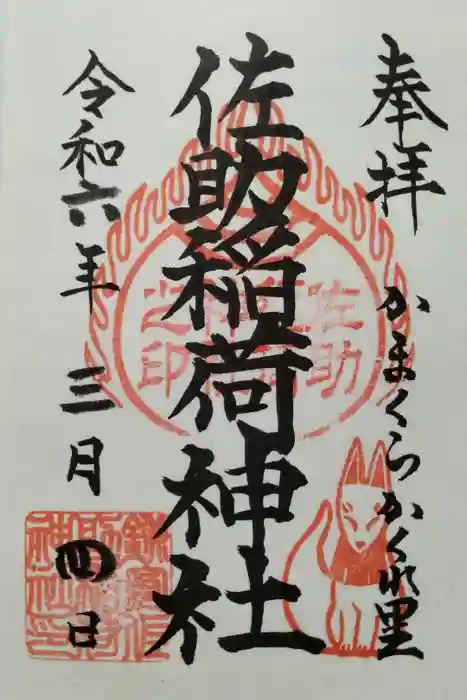 奉拝
かまくらかくれ里
佐助稲荷神社
佐助稲荷神社之印
令和六年三月四日